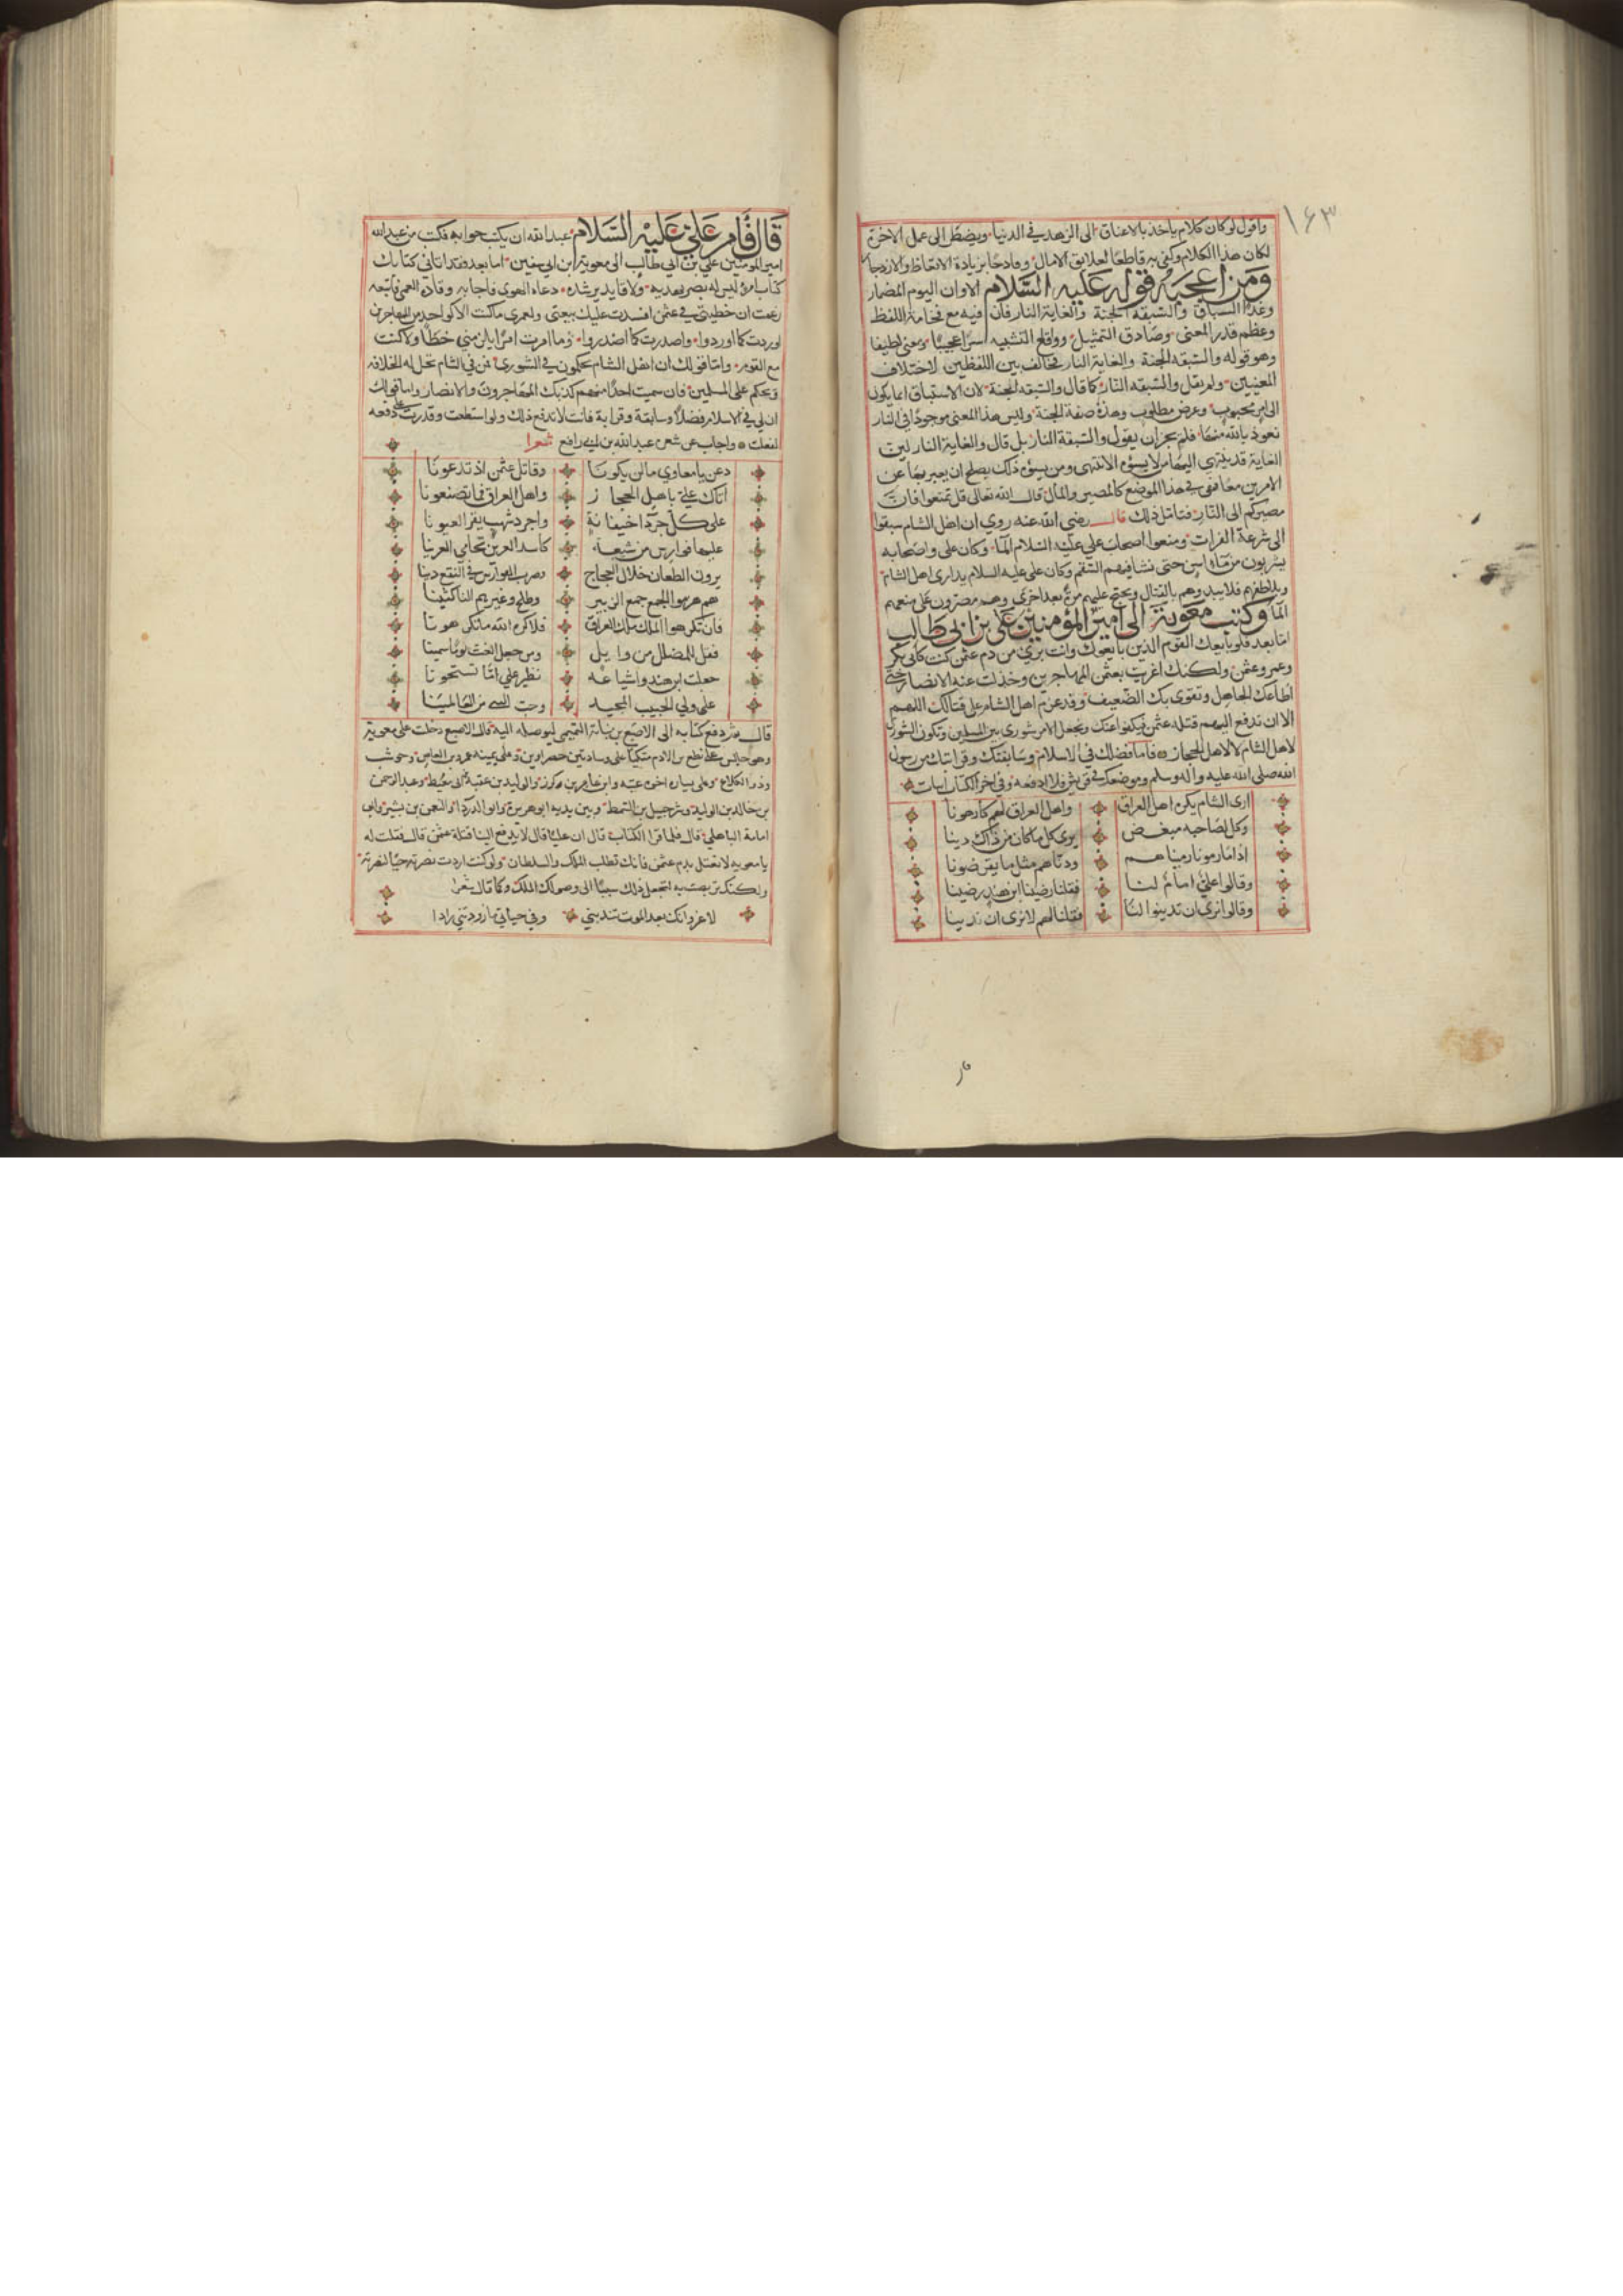 ١٦٣
واقول لو كان كلام ياخذ بالاعناق الى الزهد في الدنيا ويضطر الى عمل الاخرة
لكان هذا الكلام وكفى به قاطعا لعلايق الامال وقادحا بزيادة الاتعاظ والازدجار
ومن اعجبه قوله عليه السلام الا وان اليوم المضمار
وغدا السباق والسبقة الجنة والغاية النار فان فيه مع فخامة اللفظ
وعظم قدر المعنى وصادق التمثيل وواقع التشبيه سرا عجيبا ومعنى لطيفا
وهو قوله والسبقه الجنة والغاية النار فخالف بين اللفظين لاختلاف
المعنيين ولم يقل والسبقه النار كما قال والسبقه الجنة لان الاستباق انما يكون
الى امر محبوب وغرض مطلوب وهذه صفة الجنة وليس هذا المعنى موجودا في النار
نعوذ بالله منها فلم يجز ان يقول والسبقة النار بل قال والغاية النار لان
الغاية قد ينتهي اليها من لا يسؤه الانتهى ومن يسؤه ذلك يصلح ان يعبر بها عن
الامرين معا فهي في هذا الموضع كالمصير والمال قال الله تعالى قل تمتعوا فان
مصيركم الى النار فتامل ذلك قال رضي الله عنه روي ان اهل الشام سبقوا
الى شرعة الفرات ومنعوا اصحاب علي عليه السلام الما وكان علي واصحابه
يشربون من ماء اسن حتى نشا فيهم السقم وكان علي عليه السلام يداري اهل الشام
ويلاطفهم فلا يبدوهم بالقتال ويحتج عليهم مرة بعد اخرى وهم مصرون على منعهم
الما وكتب معوية الى امير المؤمنين علي بن ابي طالب
اما بعد فلو بايعك القوم الذين بايعوك وانت بري من دم عثمن كنت كابي بكر
وعمر وعثمن ولكنك اغريت بعثمن المهاجرين وخذلت عنه الانصار حتى
اطاعك الجاهل وتقوى بك الضعيف وقد عزم اهل الشام على قتالك اللهم
الا ان تدفع اليهم قتلة عثمن فيكفوا عنك وتجعل الامر شورى بين المسلمين وتكون الشورى
لاهل الشام لا لاهل الحجاز فاما فضلك في الاسلام وسابقتك وقرابتك من رسول
الله صلى الله عليه واله وسلم وموضعك في قريش فلا ادفعه وفي اخر الكتاب ابيات
ارى الشام يكره اهل العراق واهل العراق لهم كارهونا
وكل لصاحبه مبغض يرى كل ما كان من ذاك دينا
اذا ما رمونا رميناهم ودناهم مثل ما يقرضونا
وقالوا علي امام لنا فقلنا رضينا ابن هند رضينا
وقالوا نرى ان تدينوا لنا فقلنا لهم لا نرى ان ندينا
قال فامر علي عليه السلام عبد الله ان يكتب جوابه فكتب من عبد الله
امير المومنين علي بن ابي طالب الى معوية ابن ابي سفين اما بعد فقد اتاني كتابك
كتاب امرء ليس له بصر يهديه ولا قايد يرشده دعاه الهوى فاجابه وقاده العمى فاتبعه
زعمت ان خطيتي في عثمن افسدت عليك بيعتي ولعمري ما كنت الا كواحد من المهاجرين
اوردت كما اوردوا واصدرت كما اصدروا وما امرت امرا يلزمني خطا ولا كنت
مع القوم واما قولك ان اهل الشام يحكمون في الشورى فمن في الشام تحل له الخلافة
ويحكم على المسلمين فان سميت احدا منهم كذبك المهاجرون والانصار واما قولك
ان لي في الاسلام فضلا وسابقة وقرابة فانت لا تدفع ذلك ولو استطعت وقدرت على دفعه
لفعلت واجاب عن شعره عبد الله بن ابي رافع شعرا
دعن يا معاوي ما لن يكونا وقاتل عثمن اذ تدعونا
اتاك علي باهل الحجاز واهل العراق فما تصنعونا
على كل جردا خيفانة واجرد شهب يقر العيونا
عليها فوارس من شيعة كاسد العرين تحامي العرينا
يرون الطعان خلال العجاج وضرب الفوارس في النقع دينا
هم هزموا الجمع جمع الزبير وطلح وغيرهم الناكثينا
فان تكرهوا الملك ملك العراق فلا كره الله ما تكرهونا
فقل للمضلل من وايل ومن جعل الغث لوما سمينا
جعلت ابن هند واشياعه نظير علي اما تستحونا
على ولي الحبيب المجيب وصي النبي من العالمينا
قال ثم دفع كتابه الى الاصبغ بن نباتة التميمي ليوصله اليه قال الاصبغ دخلت على معوية
وهو جالس على نطع من الادم متكيا على وسادتين خضراوين وعلى يمينه عمرو بن العاص وحوشب
وذو الكلاع وعلى يساره اخوه عتبه وابن عامر بن كريز والوليد بن عقبة بن ابي معيط وعبد الرحمن
بن خالد بن الوليد وشرحبيل بن السمط وبين يديه ابو هريرة وابو الدردا والنعمن بن بشير وابي
امامة الباهلي قال فلما قرا الكتاب قال ان عليا قال لا يدفع الينا قتلة عثمن قال فقلت له
يا معويه لا تعتل بدم عثمن فانك تطلب الملك والسلطان ولو كنت اردت نصرته حيا لنصرته
ولكنك تربصت به لتجعل ذلك سببا الى وصولك الملك وكما قال شعرا
لا عرفنك بعد الموت تندبني وفي حياتي ما زودتني زادا